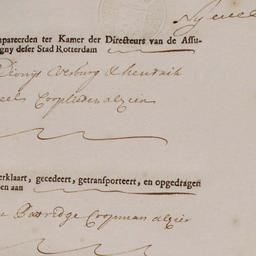 mpareerden ter Kamer der Directeurs van de Assu-
gny deser Stad Rotterdam
Dionijs Verburg & hendrik
eels Cooplieden alhier
erklaart, gecedeert, getransporteert, en opgedragen
en aan
Partridge Coopman alhier